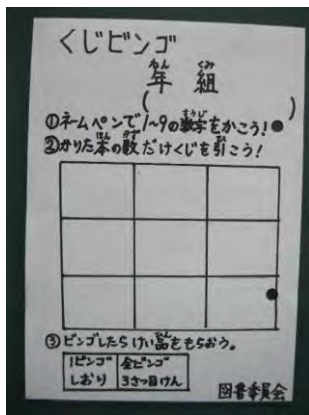 くじビンゴ
年 組
( )
①ネームペンで1~9の数字をかこう!
②かりた本の数だけくじを引こう!
③ビンゴしたらけい品をもらおう。
1ビンゴ 全ビンゴ
しおり 3さつ目けん
図書委員会